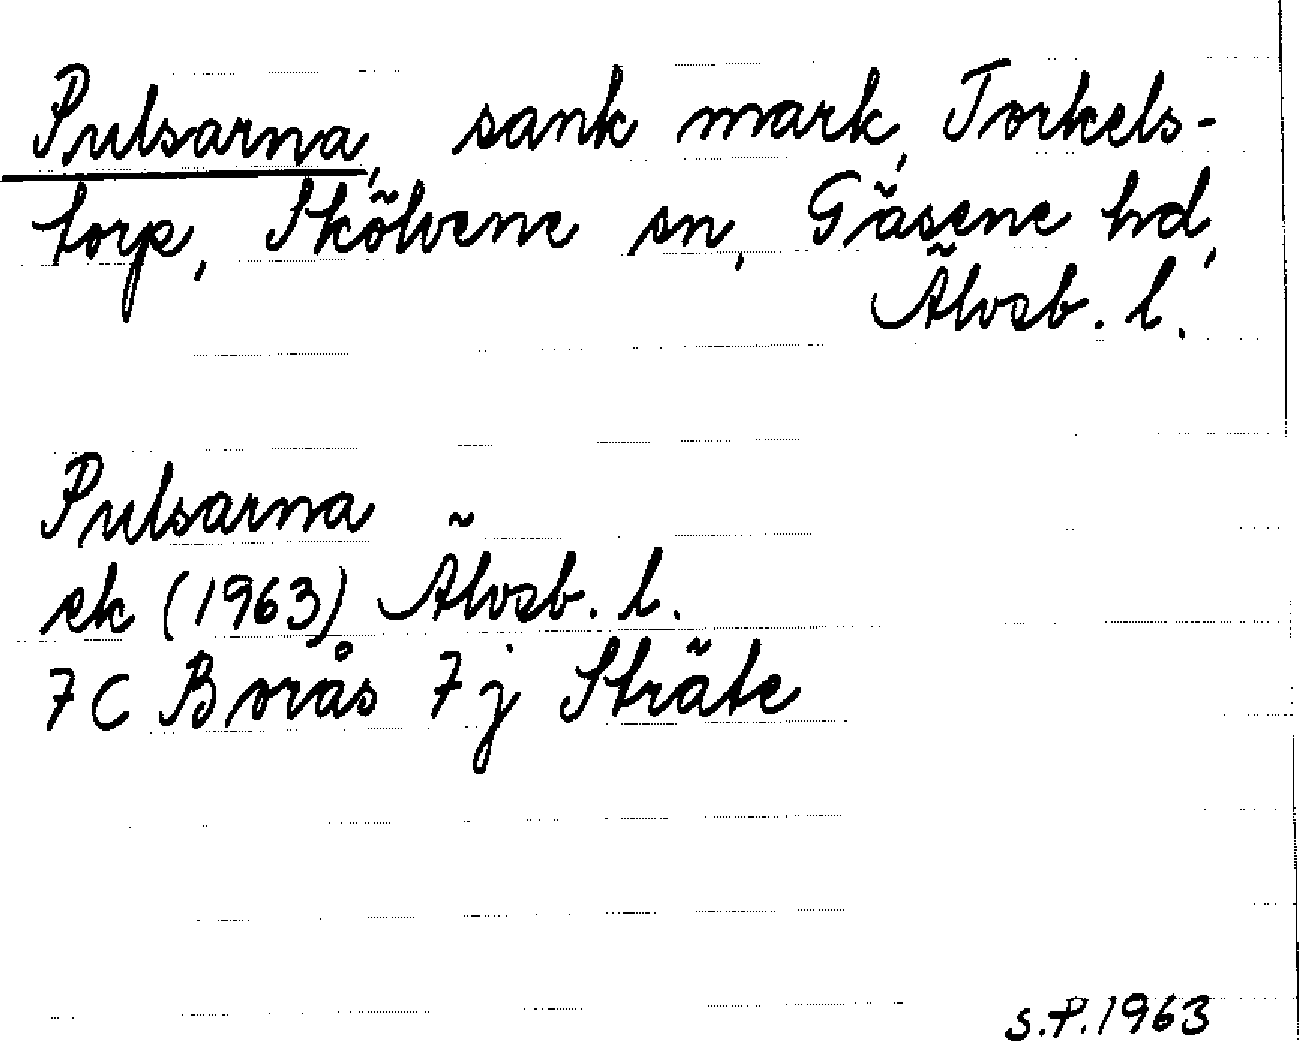 Pulsarna, sank mark, Torkels-
torp, Skölvene sn, Gäsene hd,
Älvsb. l.
Pulsarna
ek (1963) Älvsb. l.
7C Borås 7j Sträte
S.P.1963